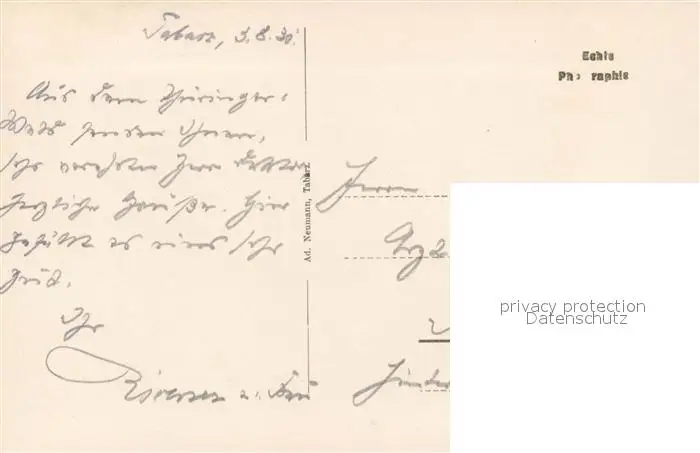 Tabarz, 3.8.31.
Aus dem Thüringer-
Wald senden Ihnen,
sehr verehrter Herr Doktor
herzliche Grüße. Hier
gefällt es uns sehr
gut.
Ihr
u. Frau
Ad. Neumann, Tabarz
Echte
Ph raphie
Herrn
privacy protection
Datenschutz